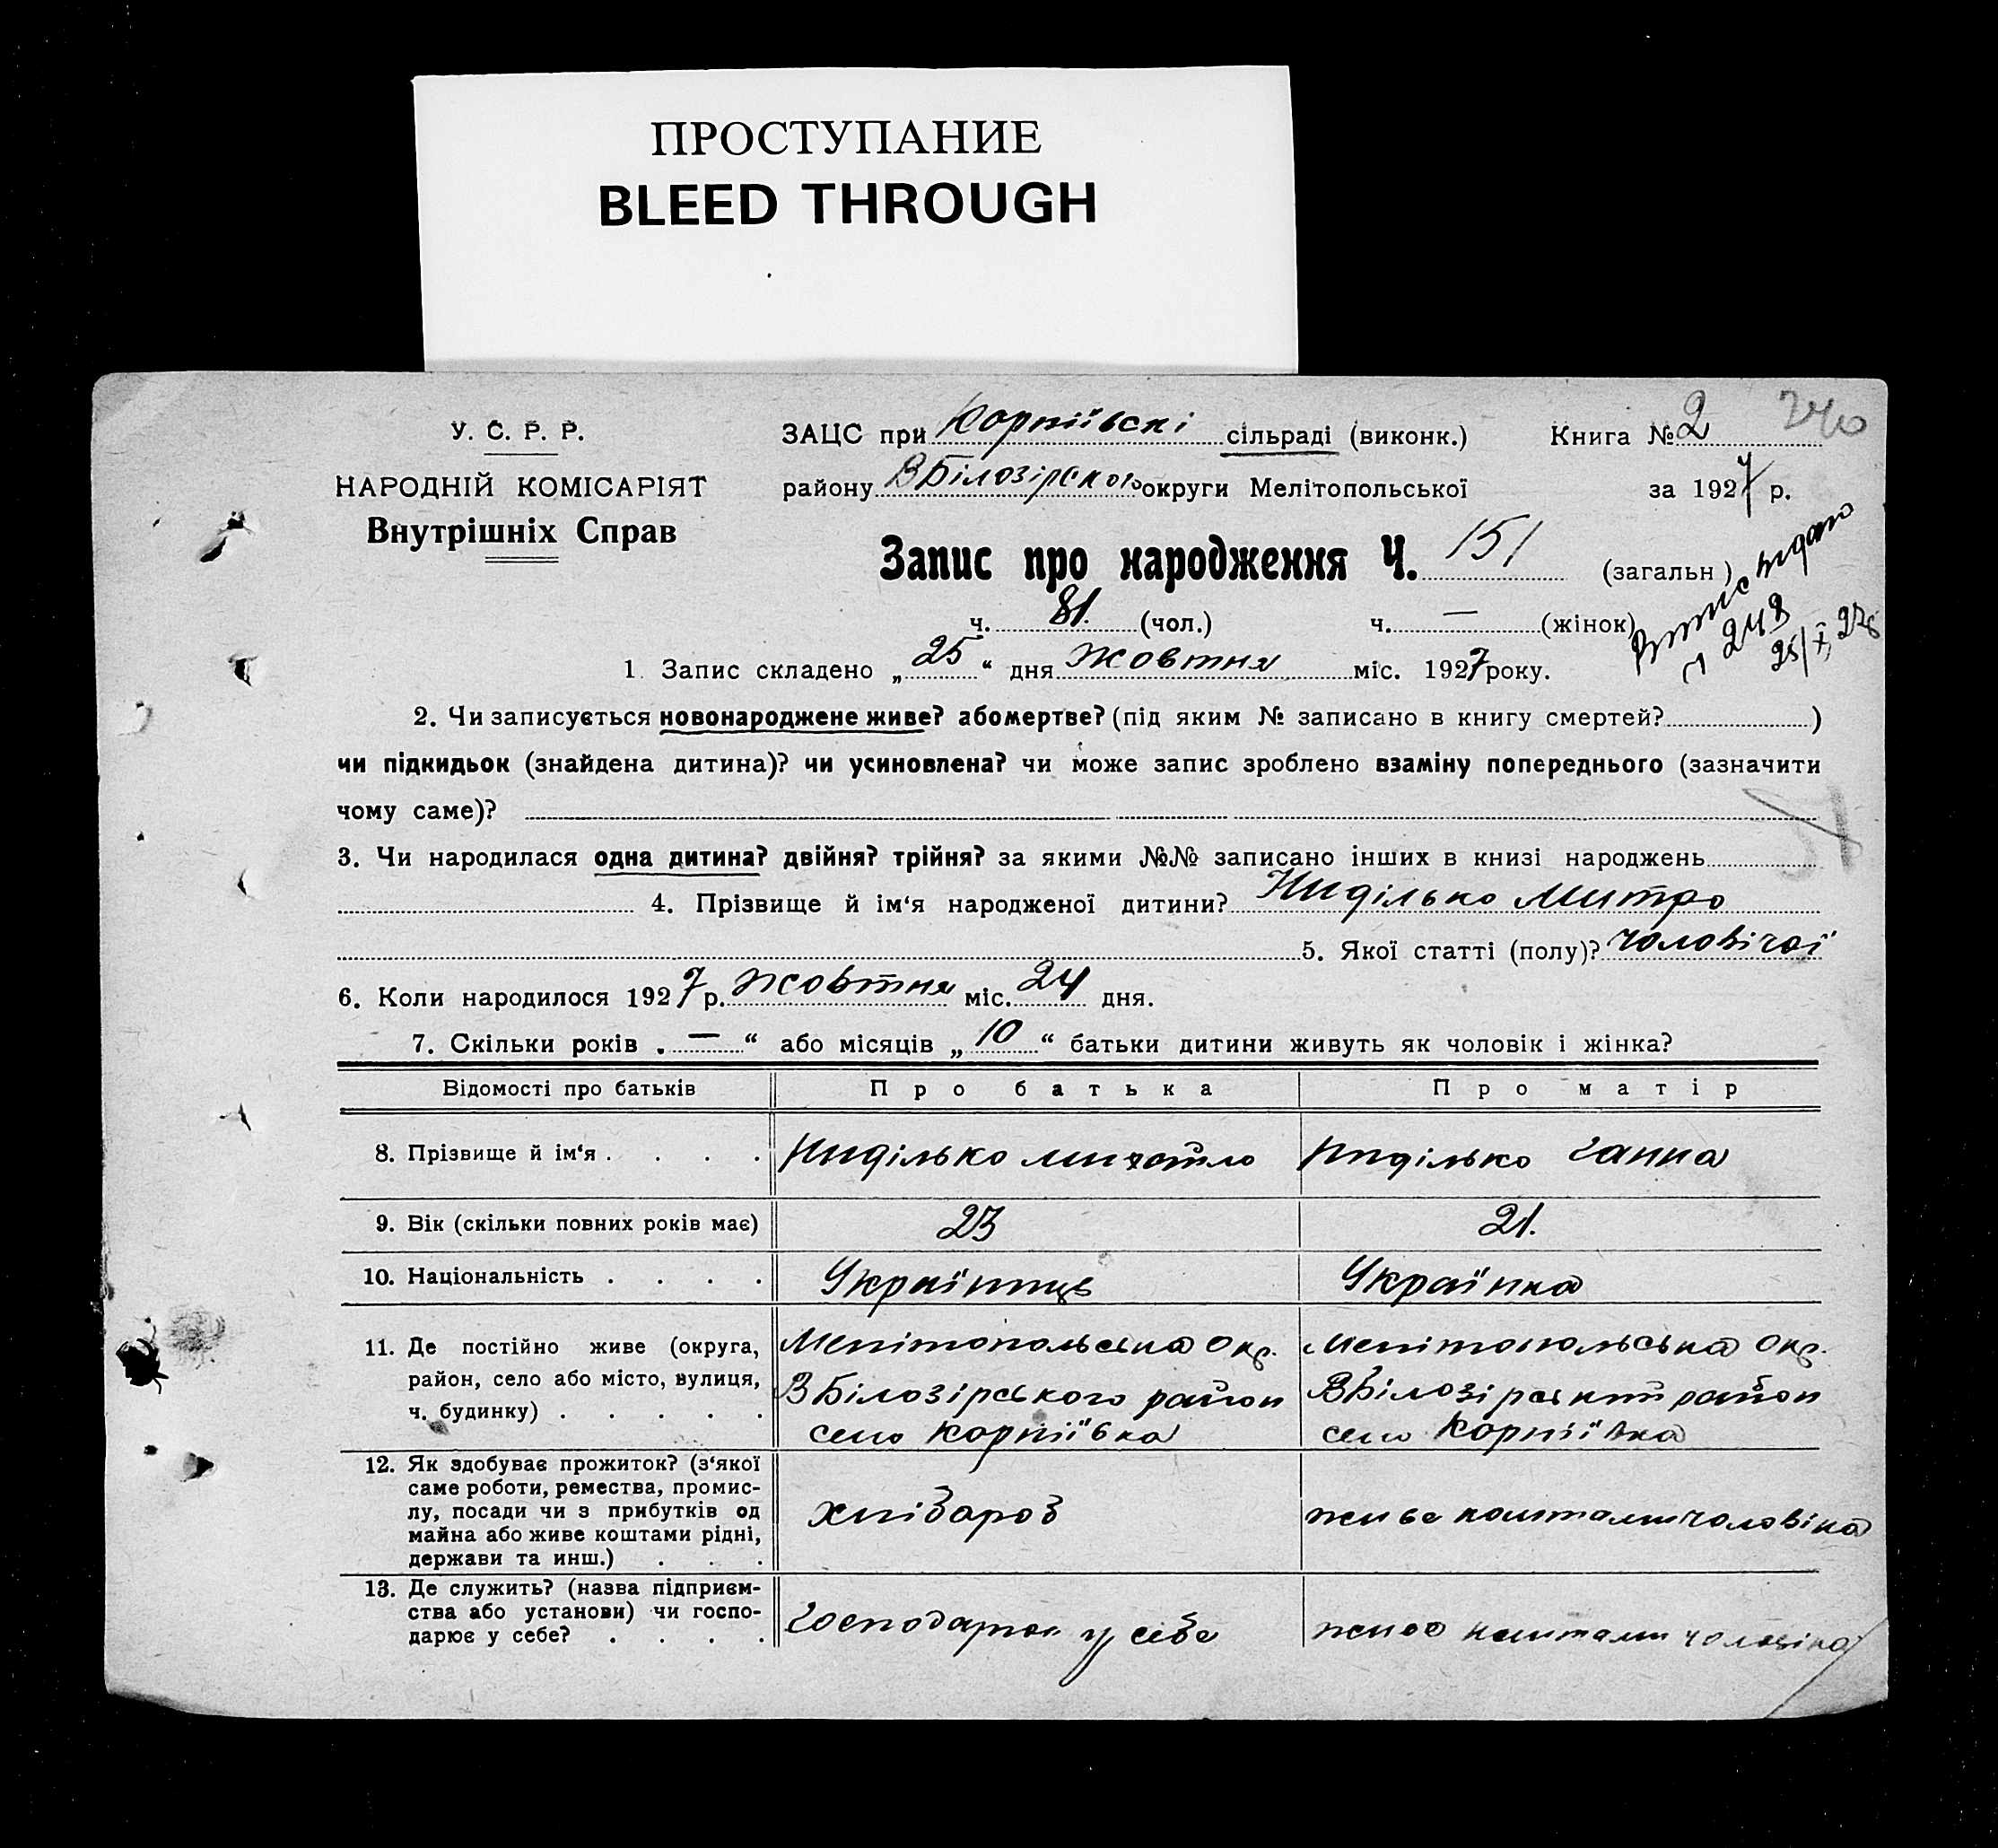 ПРОСТУПАНИЕ
BLEED THROUGH
У. С. Р. Р.
НАРОДНІЙ КОМІСАРІЯТ
Внутрішніх Справ
ЗАЦС при Корніївскі сільраді (виконк.) Книга № 2 240
району ВБілозірского округи Мелітопольської за 1927 р.
Запис про народження Ч. 151 (загальн)
ч. 81. (чол.) ч. — (жінок)
Випис видано
248
25/X 27
1. Запис складено „ 25 “ дня жовтня міс. 1927 року.
2. Чи записується новонароджене живе? або мертве? (під яким № записано в книгу смертей? )
чи підкидьок (знайдена дитина)? чи усиновлена? чи може запис зроблено взаміну попереднього (зазначити
чому саме)?
3. Чи народилася одна дитина? двійня? трійня? за якими №№ записано інших в книзі народжень
4. Прізвище й ім‘я народженої дитини? Ниділько Митро
5. Якої статті (полу)? чоловічої
6. Коли народилося 1927 р. жовтня міс. 24 дня.
7. Скільки років „ — “ або місяців „ 10 “ батьки дитини живуть як чоловік і жінка?
Відомості про батьків Про батька Про матір
8. Прізвище й ім‘я . . . . Ниділько Михайло Ниділько Ганна
9. Вік (скільки повних років має) 23 21.
10. Національність . . . . Українць Українка
11. Де постійно живе (округа, Мелітопольська Окр. Мелітопольська Окр.
район, село або місто, вулиця, ВБілозірського район ВБілозірский район
ч. будинку) . . . . . село Корніївка село Корніївка
12. Як здобуває прожиток? (з‘якої
саме роботи, ремества, промис-
лу, посади чи з прибутків од хлібароб живе коштами чоловіка
майна або живе коштами рідні,
держави та инш.) . . .
13. Де служить? (назва підприєм-
ства або установи) чи госпо- Господарює у себе живе коштами чоловіка
дарює у себе? . . . .